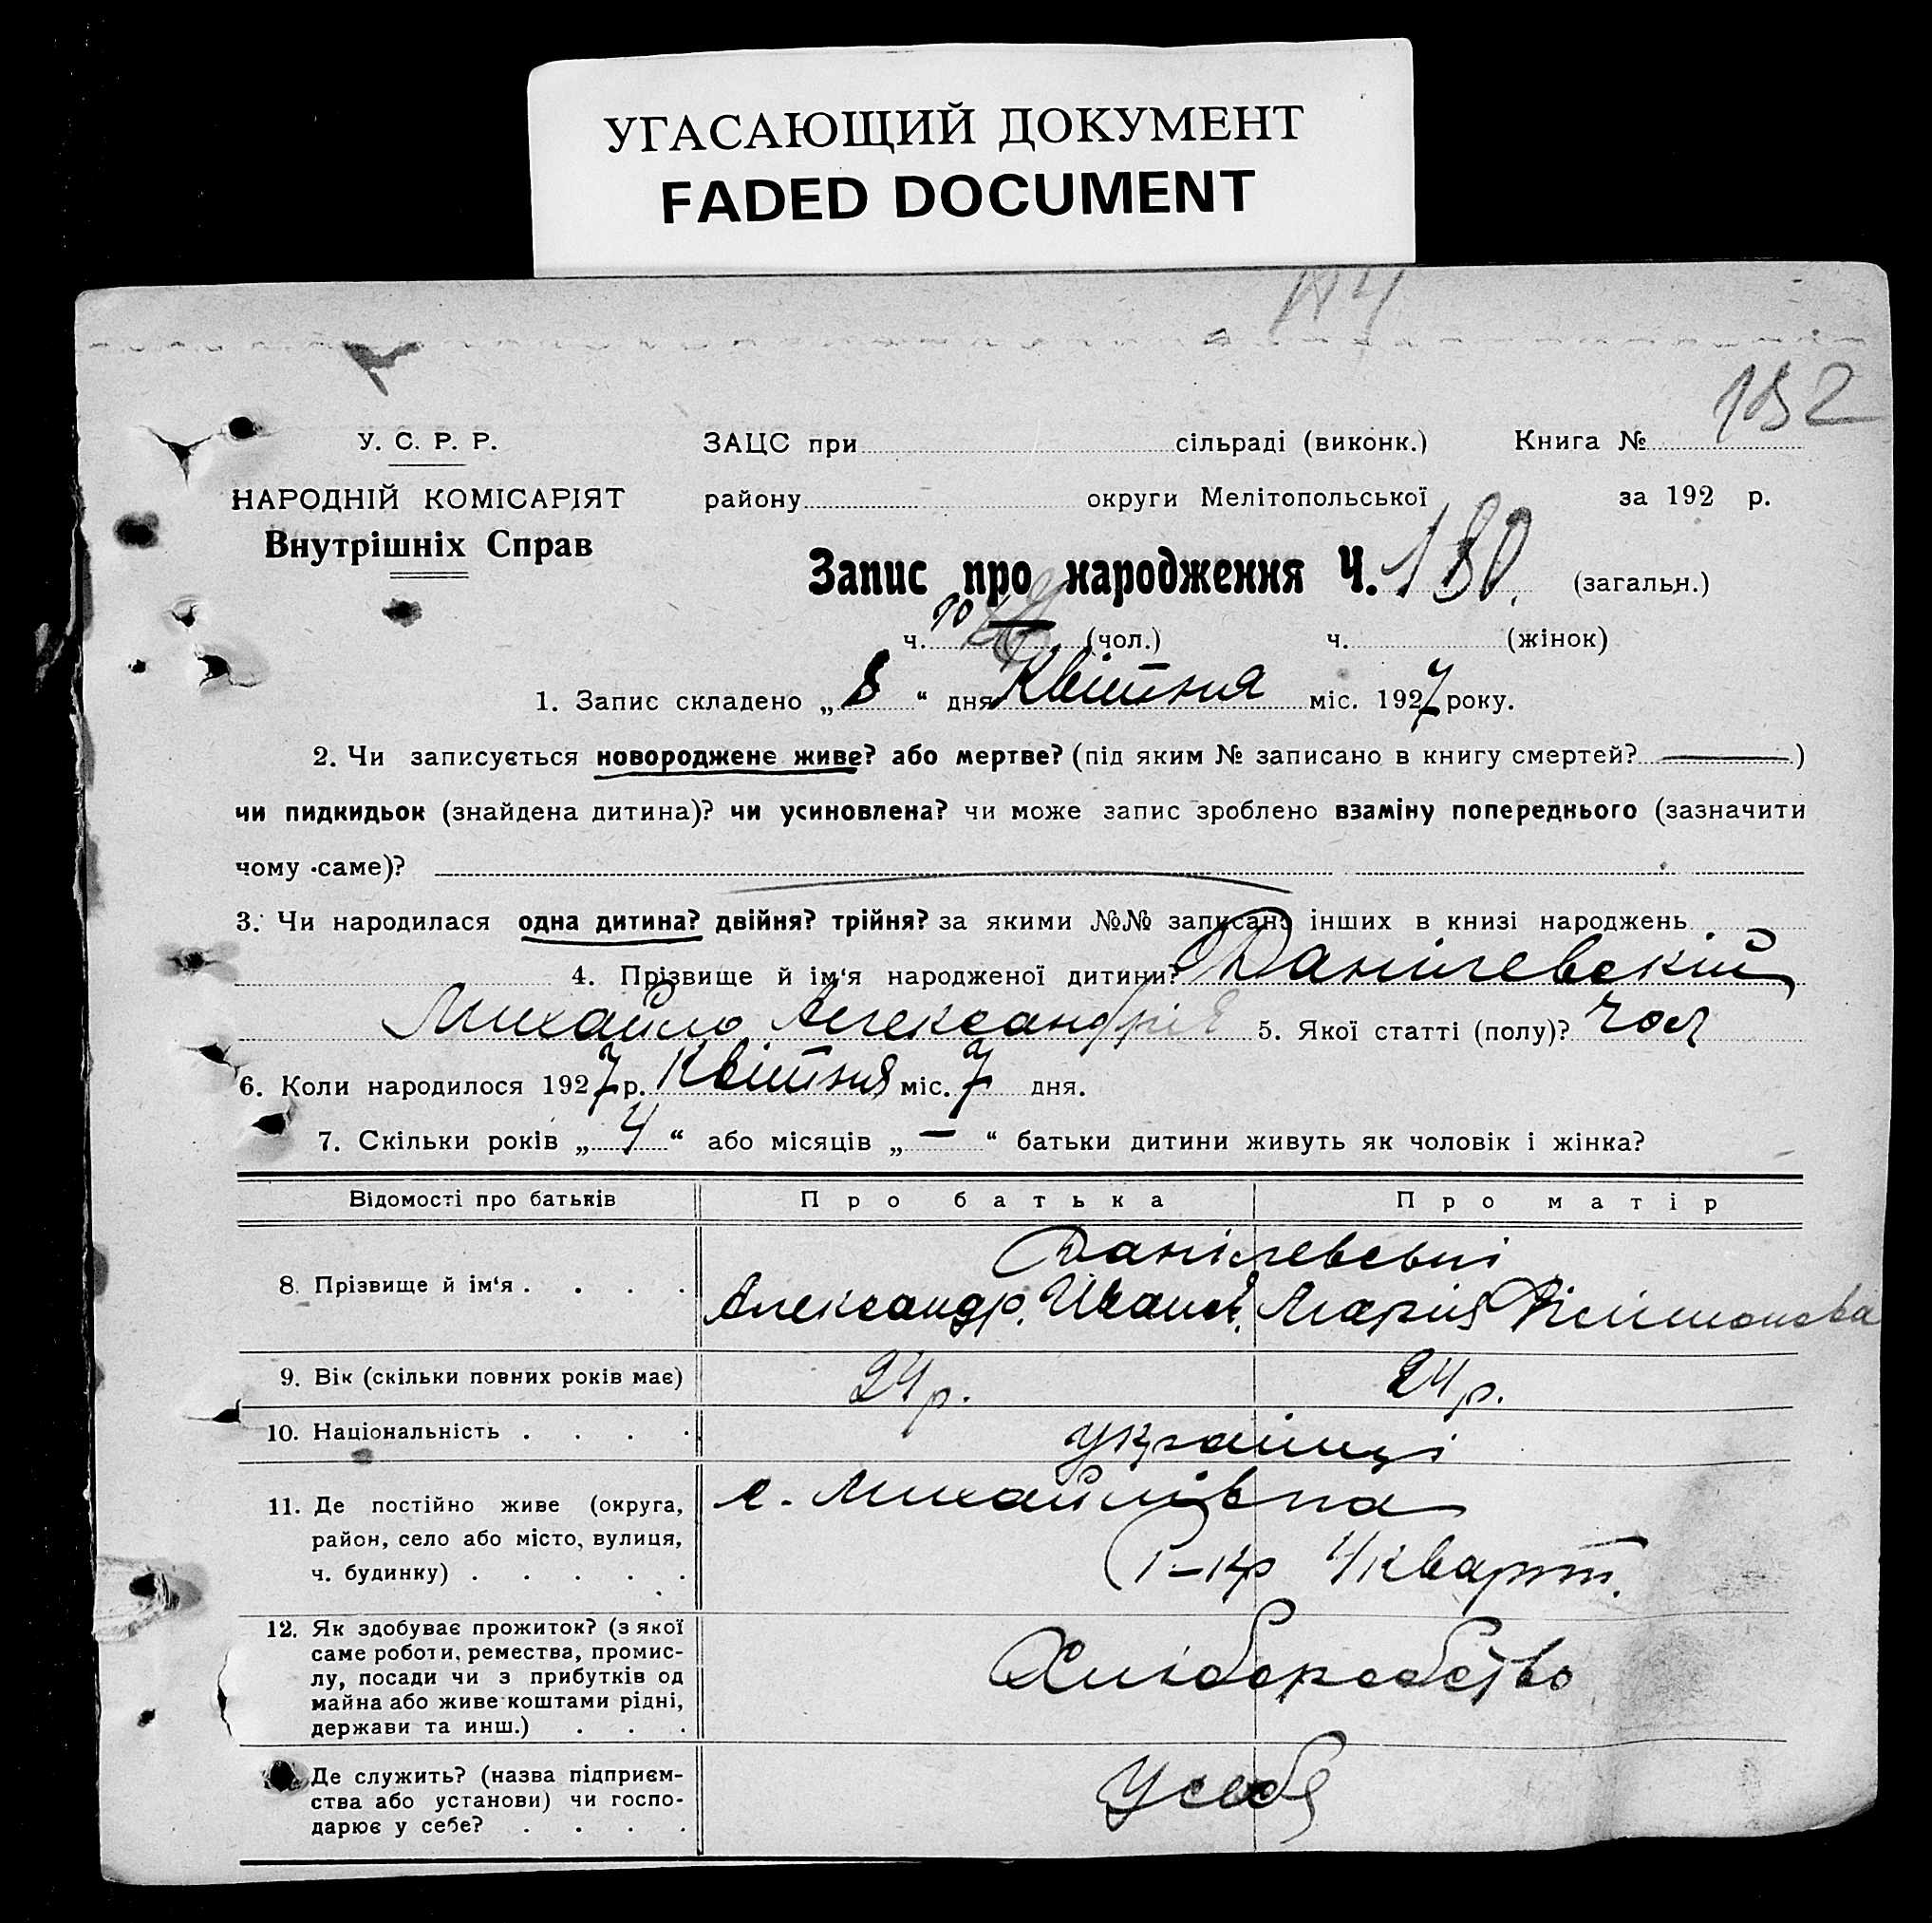 УГАСАЮЩИЙ ДОКУМЕНТ
FADED DOCUMENT
У. С. Р. Р.
НАРОДНІЙ КОМІСАРІЯТ
Внутрішніх Справ
ЗАЦС при сільраді (виконк.) Книга №
району округи Мелітопольської за 192 р.
Запис про народження Ч. 180. (загальн.)
ч. (чол.) ч. (жінок)
1. Запис складено „ 8 “ дня Квітня міс. 1927 року.
2. Чи записується новороджене живе? або мертве? (під яким № записано в книгу смертей? — )
чи пидкидьок (знайдена дитина)? чи усиновлена? чи може запис зроблено взаміну попереднього (зазначити
чому саме)?
3. Чи народилася одна дитина? двійня? трійня? за якими №№ записано інших в книзі народжень
4. Прізвище й ім‘я народженої дитини? Данілевскій
Михайло Александрія 5. Якої статті (полу)? Чол
6. Коли народилося 1927 р. Квітня міс. 7 дня.
7. Скільки років „ 4 “ або місяців „ — “ батьки дитини живуть як чоловік і жінка?
Відомості про батьків Про батька Про матір
8. Прізвище й ім‘я . . . . Данілевські
Александр. Іванов. Марія
9. Вік (скільки повних років має) 24 р. 24 р.
10. Національність . . . . українці
11. Де постійно живе (округа,
район, село або місто, вулиця,
ч. будинку) . . . . .
с. Михайлівка
4 кварт.
12. Як здобуває прожиток? (з якої
саме роботи, ремества, промис-
лу, посади чи з прибутків од
майна або живе коштами рідні,
держави та инш.) . . .
Хліборобство
Де служить? (назва підприєм-
ства або установи) чи госпо-
дарює у себе? . . . .
У себя